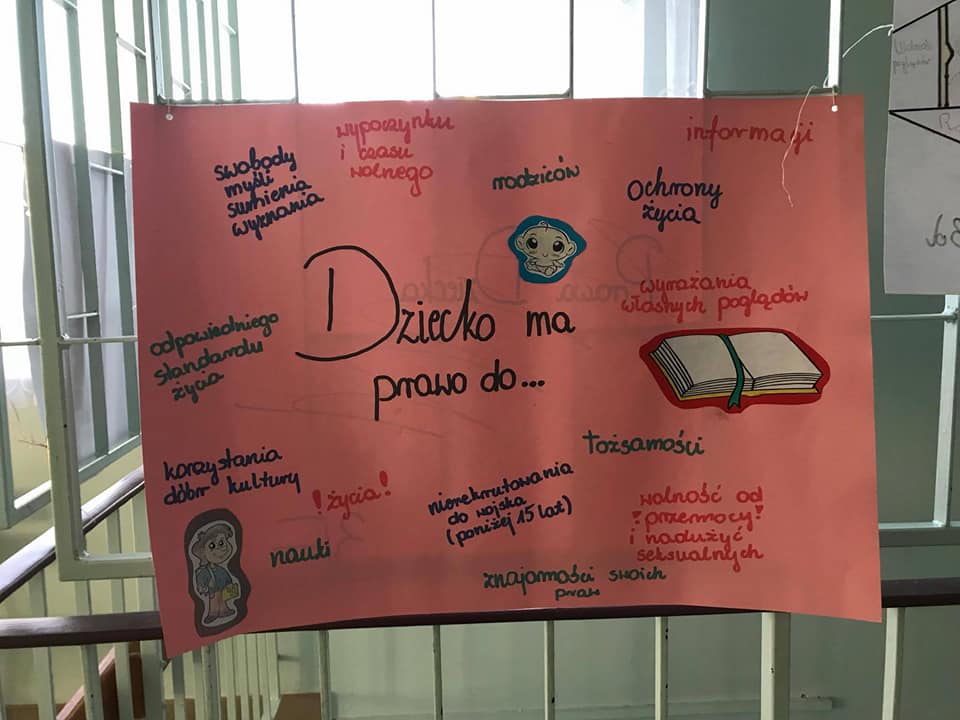 swobody
myśli
sumienia
wyznania
wypoczynku
i czasu
wolnego
rodziców
informacji
Ochrony
życia
wyrażania
własnych poglądów
Dziecko ma
prawo do...
odpowiedniego
standardu
życia
korzystania
dóbr kultury
!życia!
nauki
nierekrutowania
do wojska
(poniżej 15 lat)
tożsamości
wolność od
!przemocy!
i nadużyć
seksualnych
znajomości swoich
praw